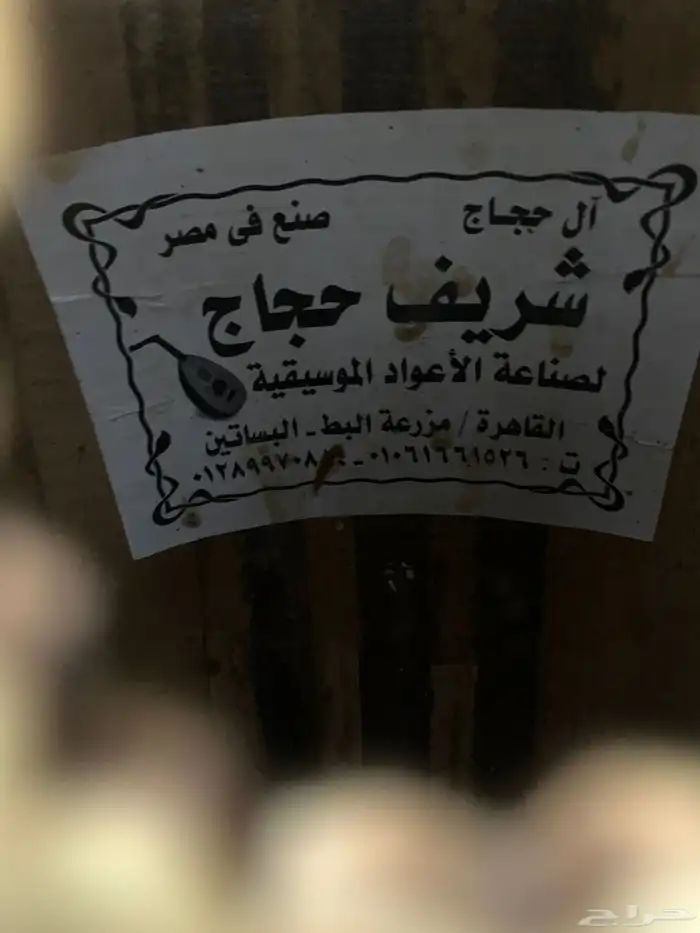 آل حجاج
صنع فى مصر
شريف حجاج
لصناعة الأعواد الموسيقية
القاهرة / مزرعة البط - البساتين
ت : ٠١٠٦١٦٦١٥٢٦ -
حراج